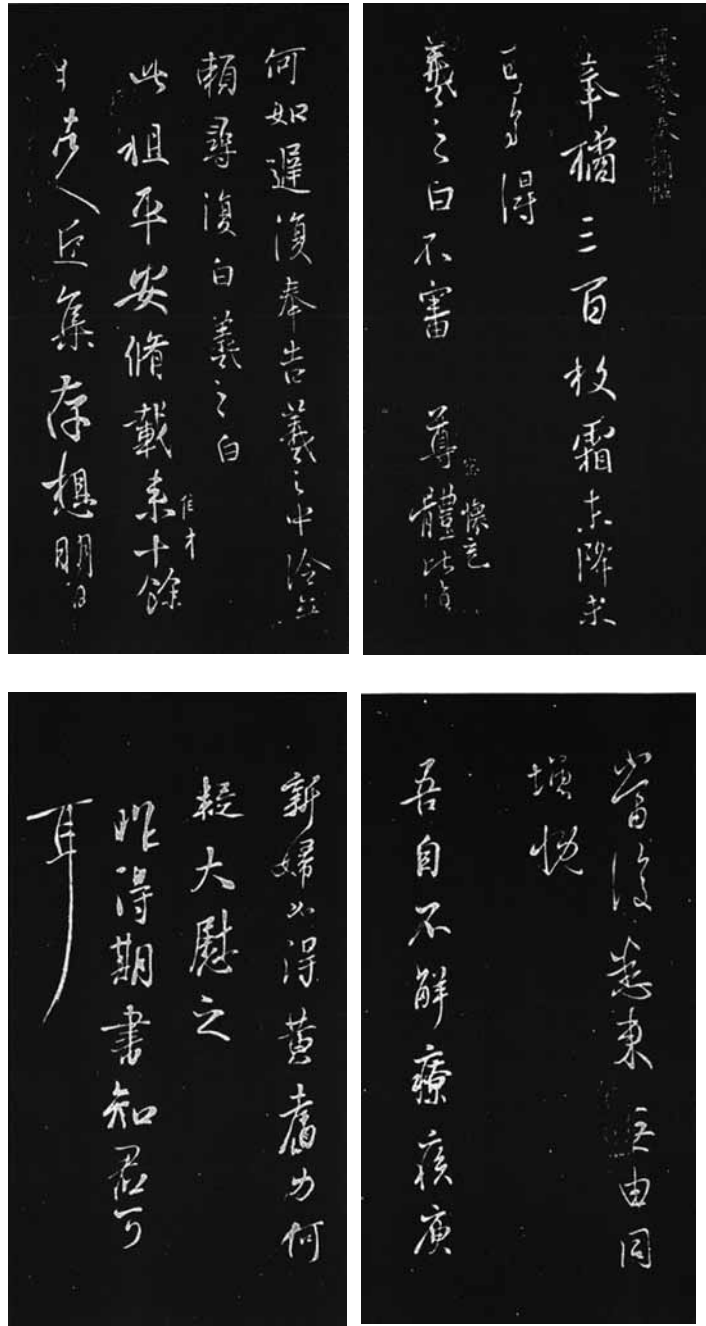 晋王羲之奉橘帖
奉橘三百枚霜未降未
可多得
羲之白不審 尊體比復
察 懷充
何如遲復奉告羲之中冷無
賴尋復白羲之白
此粗平安脩載來十餘
日諸人近集存想明日
當復悉來無由同
增慨
吾自不解療疾
新婦以得黃耆力何
大慰之
昨得期書知君可
耳